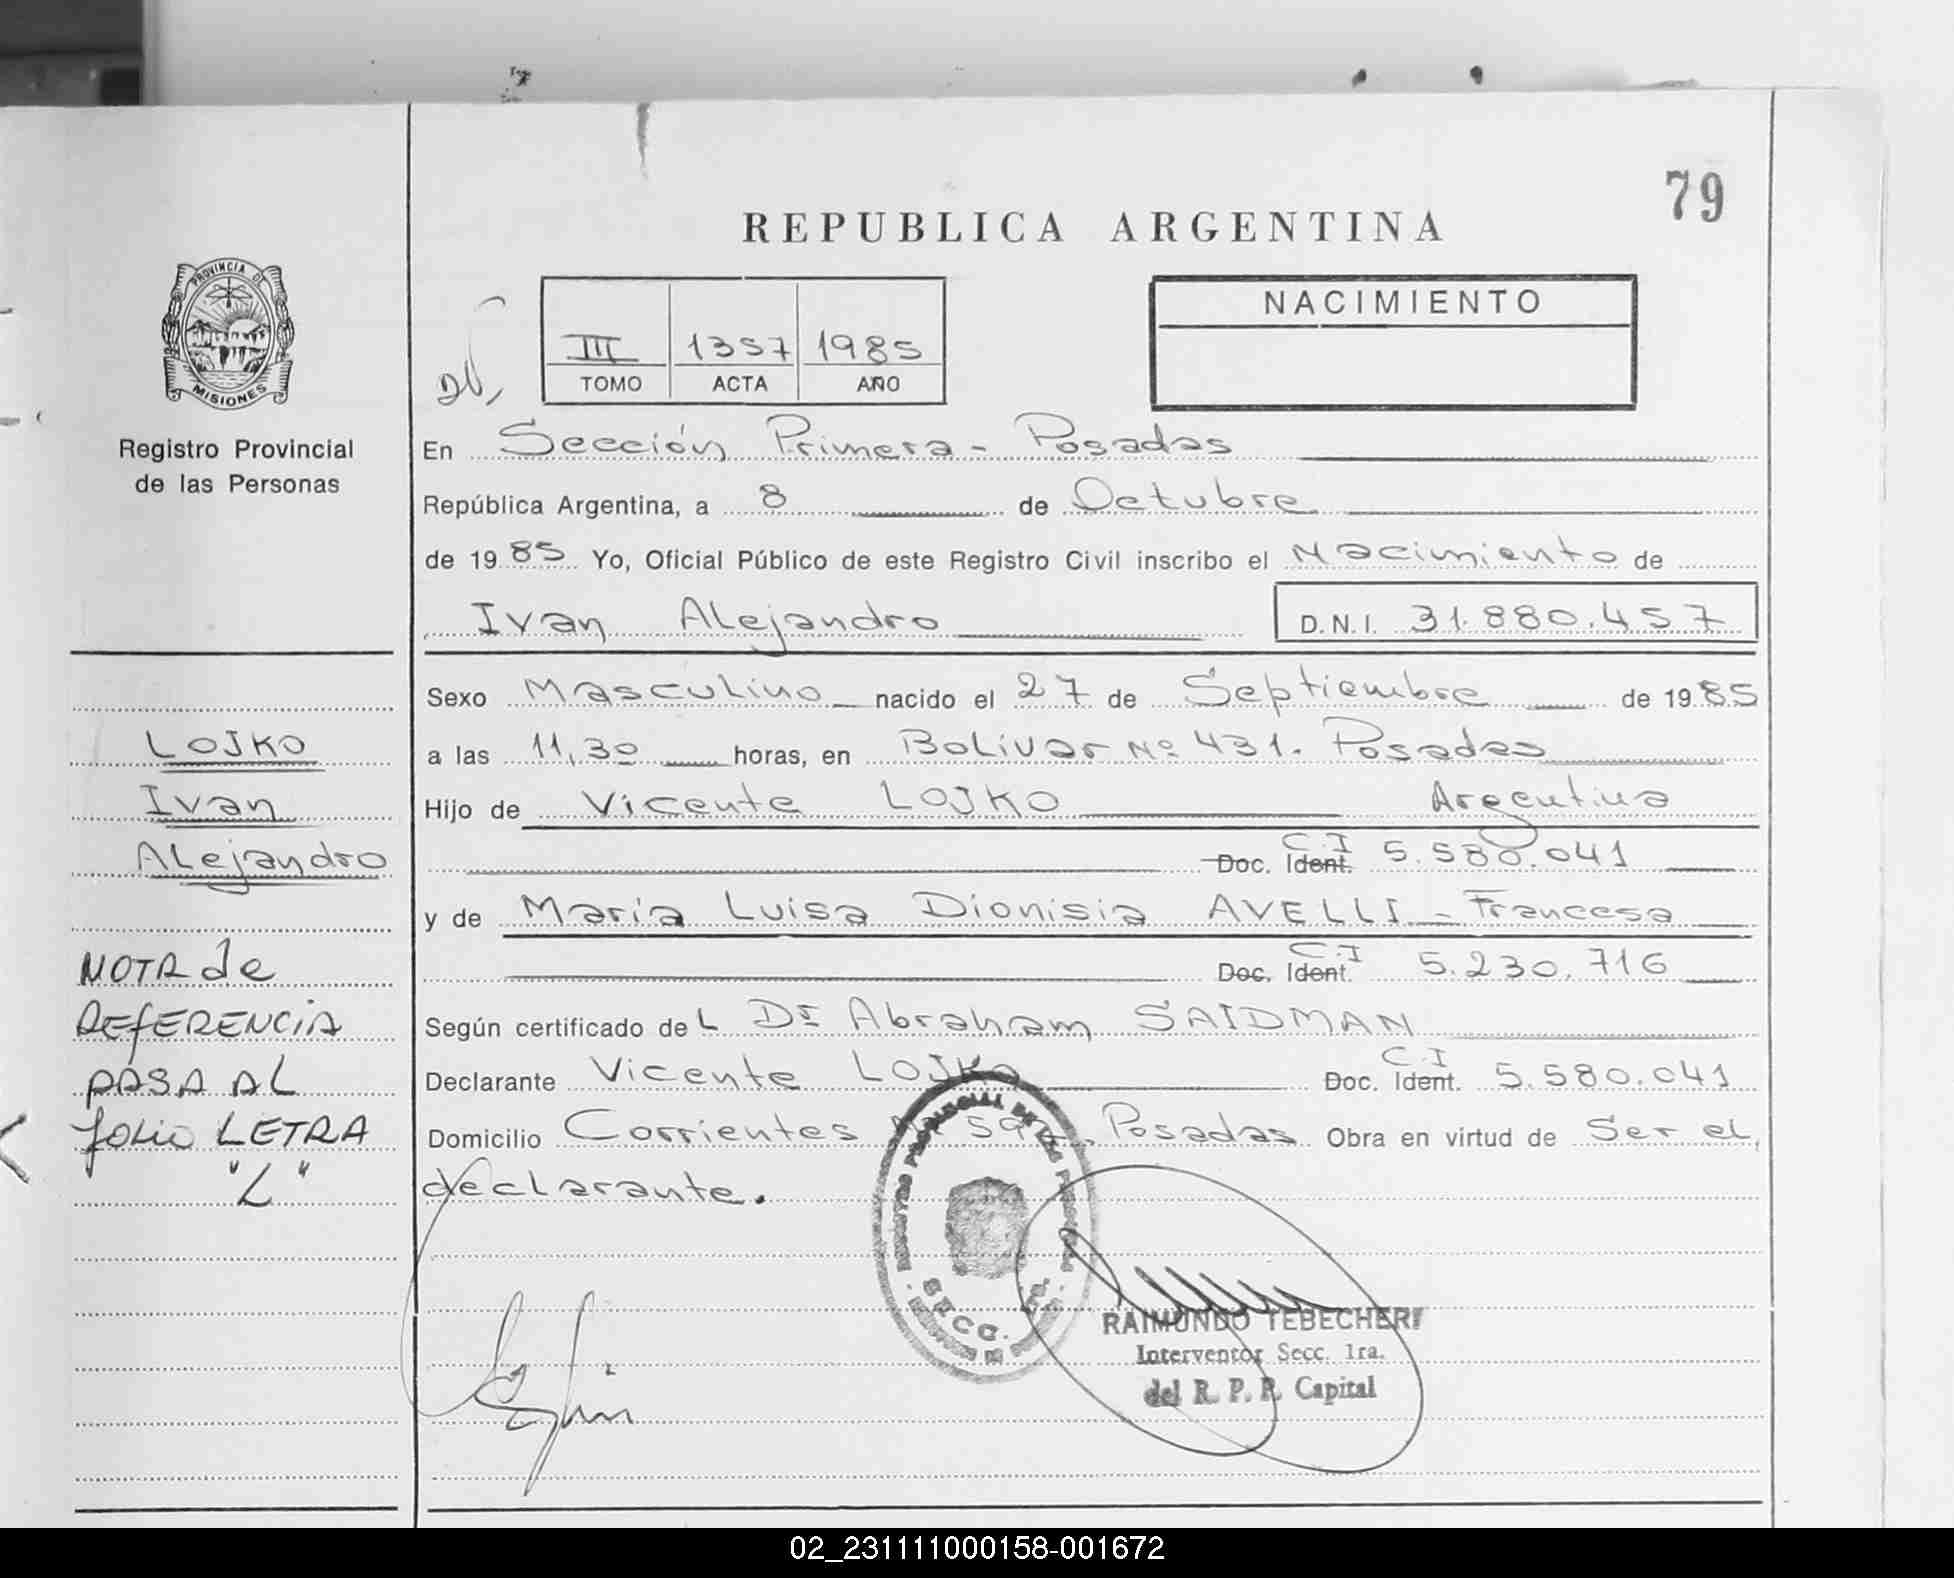 79
REPUBLICA ARGENTINA
PROVINCIA DE
MISIONES
Registro Provincial
de las Personas
III 1357 1985
TOMO ACTA AÑO
NACIMIENTO
En Sección Primera - Posadas
República Argentina, a 8 de Octubre
de 1985 Yo, Oficial Público de este Registro Civil inscribo el Nacimiento de
Ivan Alejandro D.N.I. 31.880.457
Sexo Masculino nacido el 27 de Septiembre de 1985
a las 11,30 horas, en Bolivar Nº 431. Posadas
Hijo de Vicente LOJKO Argentina
C.I
Doc. Ident. 5.580.041
y de María Luisa Dionisia AVELLI - Francesa
C.I
Doc. Ident. 5.230.716
Según certificado del Dr Abraham SAIDMAN
C.I
Declarante Vicente LOJKO Doc. Ident. 5.580.041
Domicilio Corrientes 59 Posadas Obra en virtud de Ser el
declarante.
LOJKO
Ivan
Alejandro
NOTA de
REFERENCIA
PASA AL
folio LETRA
"L"
PROVINCIAL DE LAS
SECC.
RAIMUNDO TEBECHERI
Interventor Secc. 1ra.
del R. P. P. Capital
02_231111000158-001672